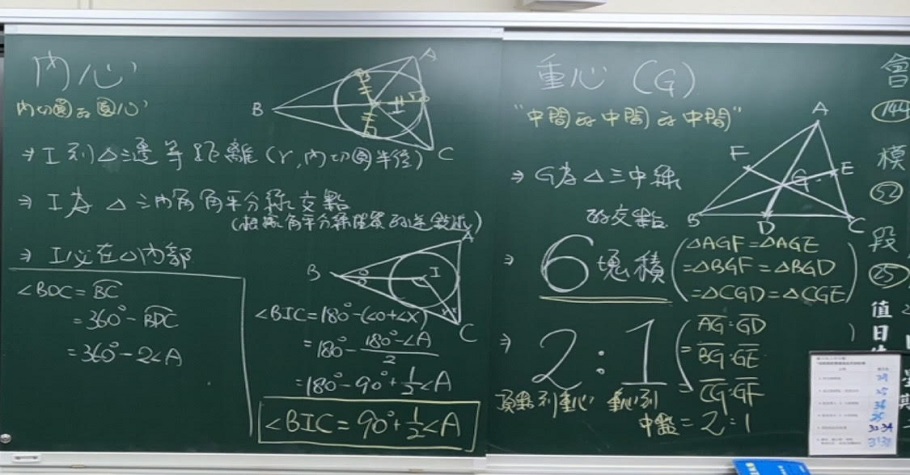 內心
內切圓的圓心
B
A
I
C
⇒ I到△三邊等距離(r,內切圓半徑)
⇒ I為△三內角角平分線交點
(根據角平分線性質的逆敘述)
⇒ I必在△內部
∠BOC = BC
= 360° - BDC
= 360° - 2∠A
A
B
I
C
∠BIC = 180° - (∠o+∠x)
= 180° - 180°-∠A / 2
= 180° - 90° + 1/2∠A
∠BIC = 90° + 1/2∠A
重心 (G)
"中間的中間的中間"
A
F
E
G
B
D
C
⇒ G為△三中線
的交點
⇒ 6塊積 (△AGF=△AGE
=△BGF=△BGD
=△CGD=△CGE)
⇒ 2:1 (AG:GD
= BG:GE
= CG:GF
= 2:1)
頂點到重心 重心到
中點
會
144
模
52
段
25
值
日